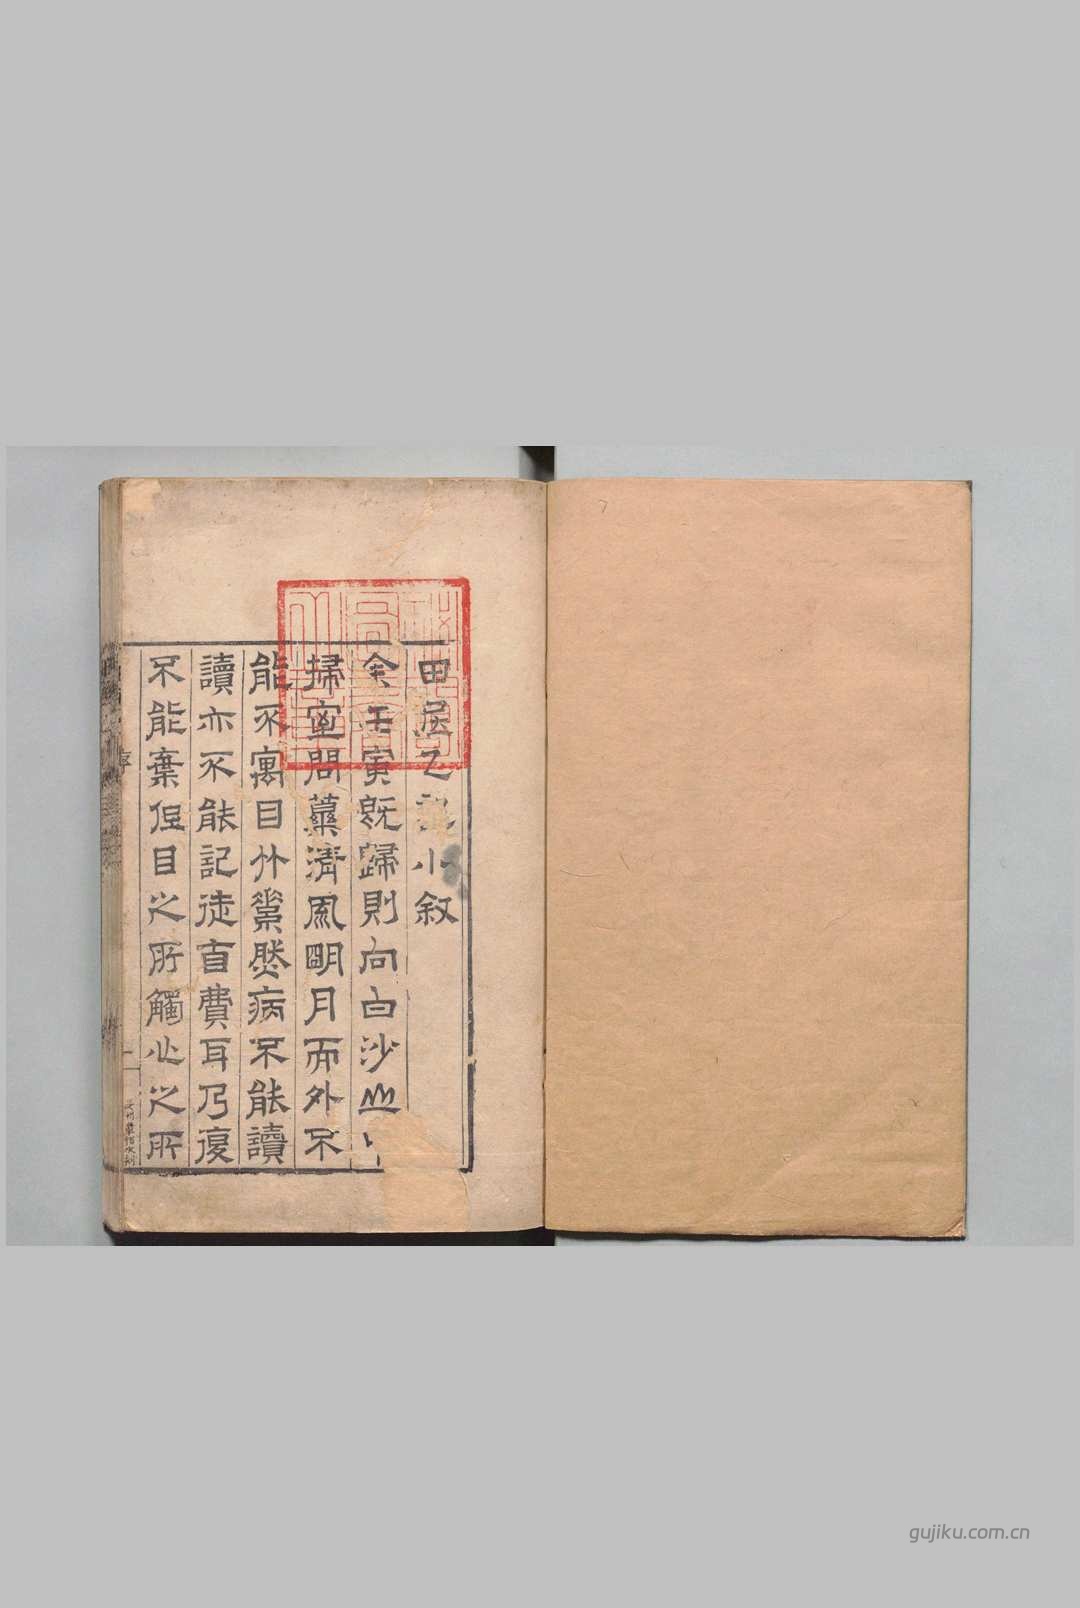 田居乙記小敘
余壬寅既歸則向白沙山
掃室問蘽清風明月而外不
能不寓目竹素然病不能讀
讀亦不能記徒自費耳乃復
不能棄但目之所觸心之所
序
一
gujiku.com.cn